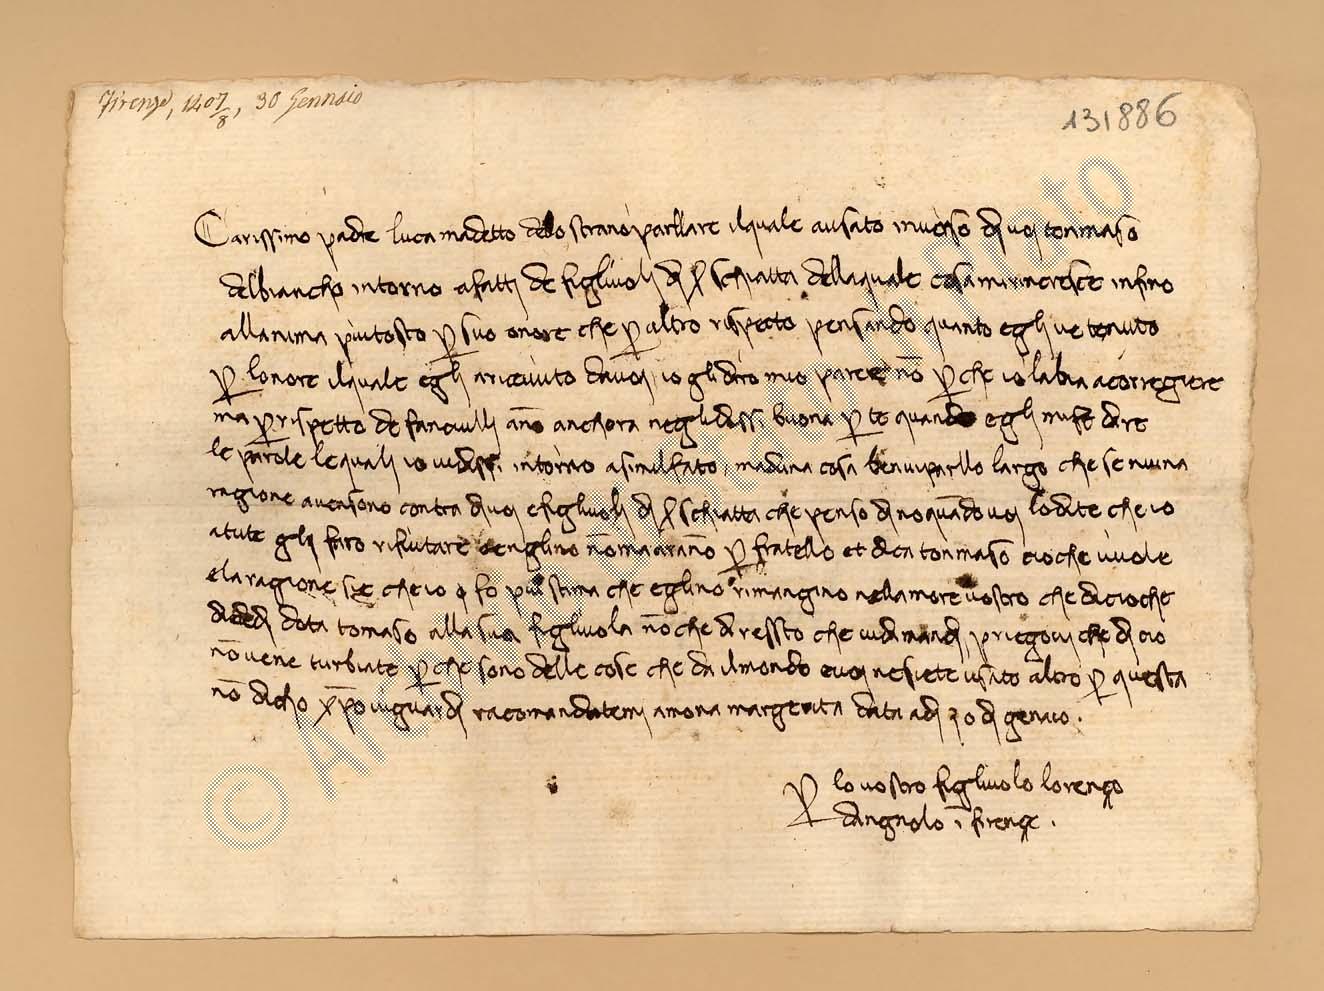 Firenze, 1407/8, 30 Gennaio
131886
Carissimo padre luca madetto dello strano parllare ilquale ausato inverso di voi tommaso
delbiancho intorno afatti de figliuoli di schiatta dellaquale cosa mirincresce infino
allanima piutosto per suo onore che per altro rispecto pensando quanto egli ve tenuto
per lonore ilquale egli a ricevuto davoi io glidiro mio parere nō per che io labia acorregiere
ma per rispetto de fanciulli anchora neglidissi buona per te quando egli mife dire
le parole lequali io vidissi intorno asimilfato maduna cosa benviparllo largo che se niuna
ragione avesono contra divoi efigliuoli di schiatta che penso dino quādo voi lodite che io
atute gli faro rifiutare senglino nōmarano per fratello et dica tommaso cioche vuole
elaragione sie che io fo piu stima che eglino rimangino nellamore vostro che dicioche
didedi dota tomaso alla sua figliuola nōche diressto che vidimandi priegovi che di cio
nōvene turbiate per che sono delle cose che da ilmondo evoi nesiete usato altro per questa
nō dicho xp̄o viguardi racomandatemi amona margerita data adi 30 di genaio.
per lo vostro figliuolo lorenzo
dangnolo ī firenze.
© Archivio di Stato di Prato